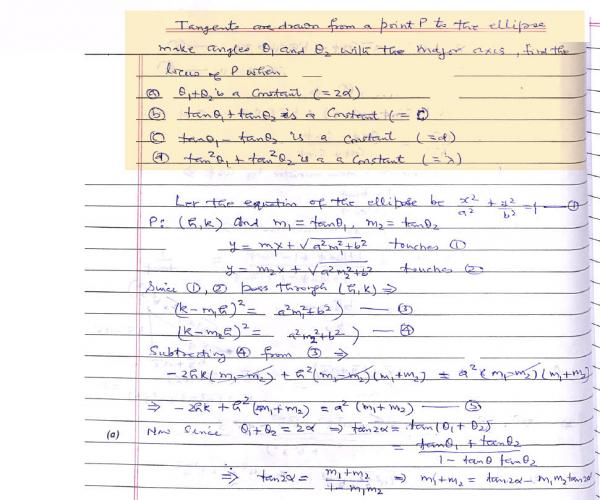 Tangents are drawn from a point P to the ellipse
make angles θ₁ and θ₂ with the major axis, find the
locus of P when
(a) θ₁+θ₂ is a constant (=2α)
(b) tanθ₁ + tanθ₂ is a constant (= c)
(c) tanθ₁ - tanθ₂ is a constant (=d)
(d) tan²θ₁ + tan²θ₂ is a a constant (=λ)
Let the equation of the ellipse be x²/a² + y²/b² = 1 — ①
P: (h,k) and m₁ = tanθ₁, m₂ = tanθ₂
y = m₁x + √(a²m₁²+b²) touches ①
y = m₂x + √(a²m₂²+b²) touches ②
Since ①, ② pass through (h,k) ⇒
(k-m₁h)² = a²m₁²+b²) — ③
(k-m₂h)² = a²m₂²+b²) — ④
Subtracting ④ from ③ ⇒
-2hk(m₁-m₂) + h²(m₁-m₂)(m₁+m₂) = a²(m₁-m₂)(m₁+m₂)
⇒ -2hk + h²(m₁+m₂) = a²(m₁+m₂) — ⑤
(a) Now since θ₁+θ₂ = 2α ⇒ tan2α = tan(θ₁+θ₂)
= (tanθ₁ + tanθ₂)/(1 - tanθ tanθ₂)
∴ ⇒ tan2α = (m₁+m₂)/(1-m₁m₂) ⇒ m₁+m₂ = tan2α - m₁m₂ tan2α